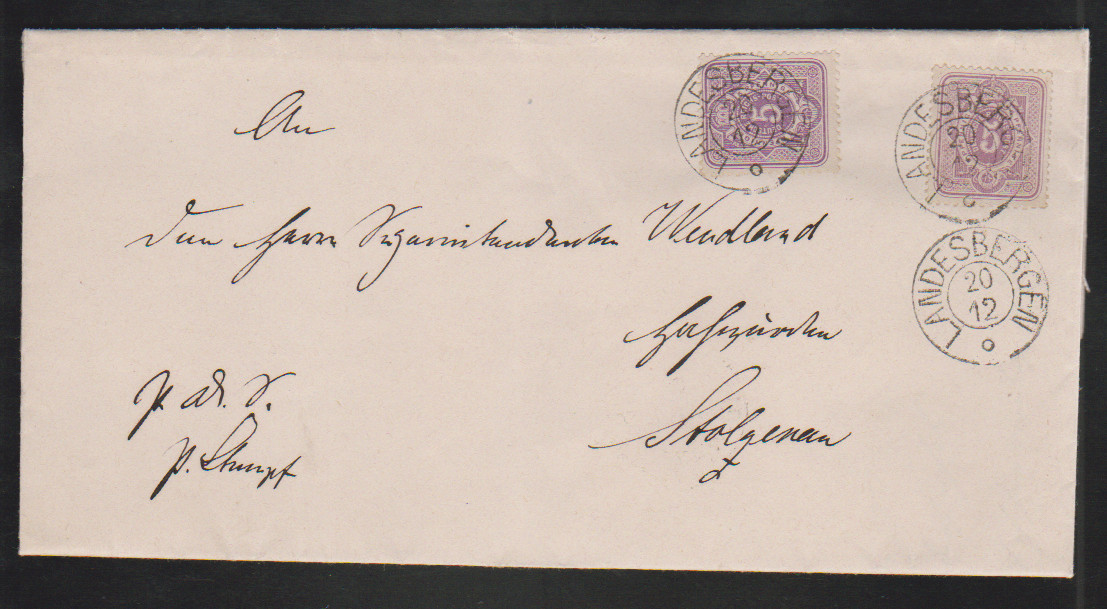 An
den Herrn Superintendenten Wendland
Hochwürden
Stolzenau
p. Stumpf
LANDESBERGEN
20
12
LANDESBERGEN
20
12
LANDESBERGEN
20
12
5
5